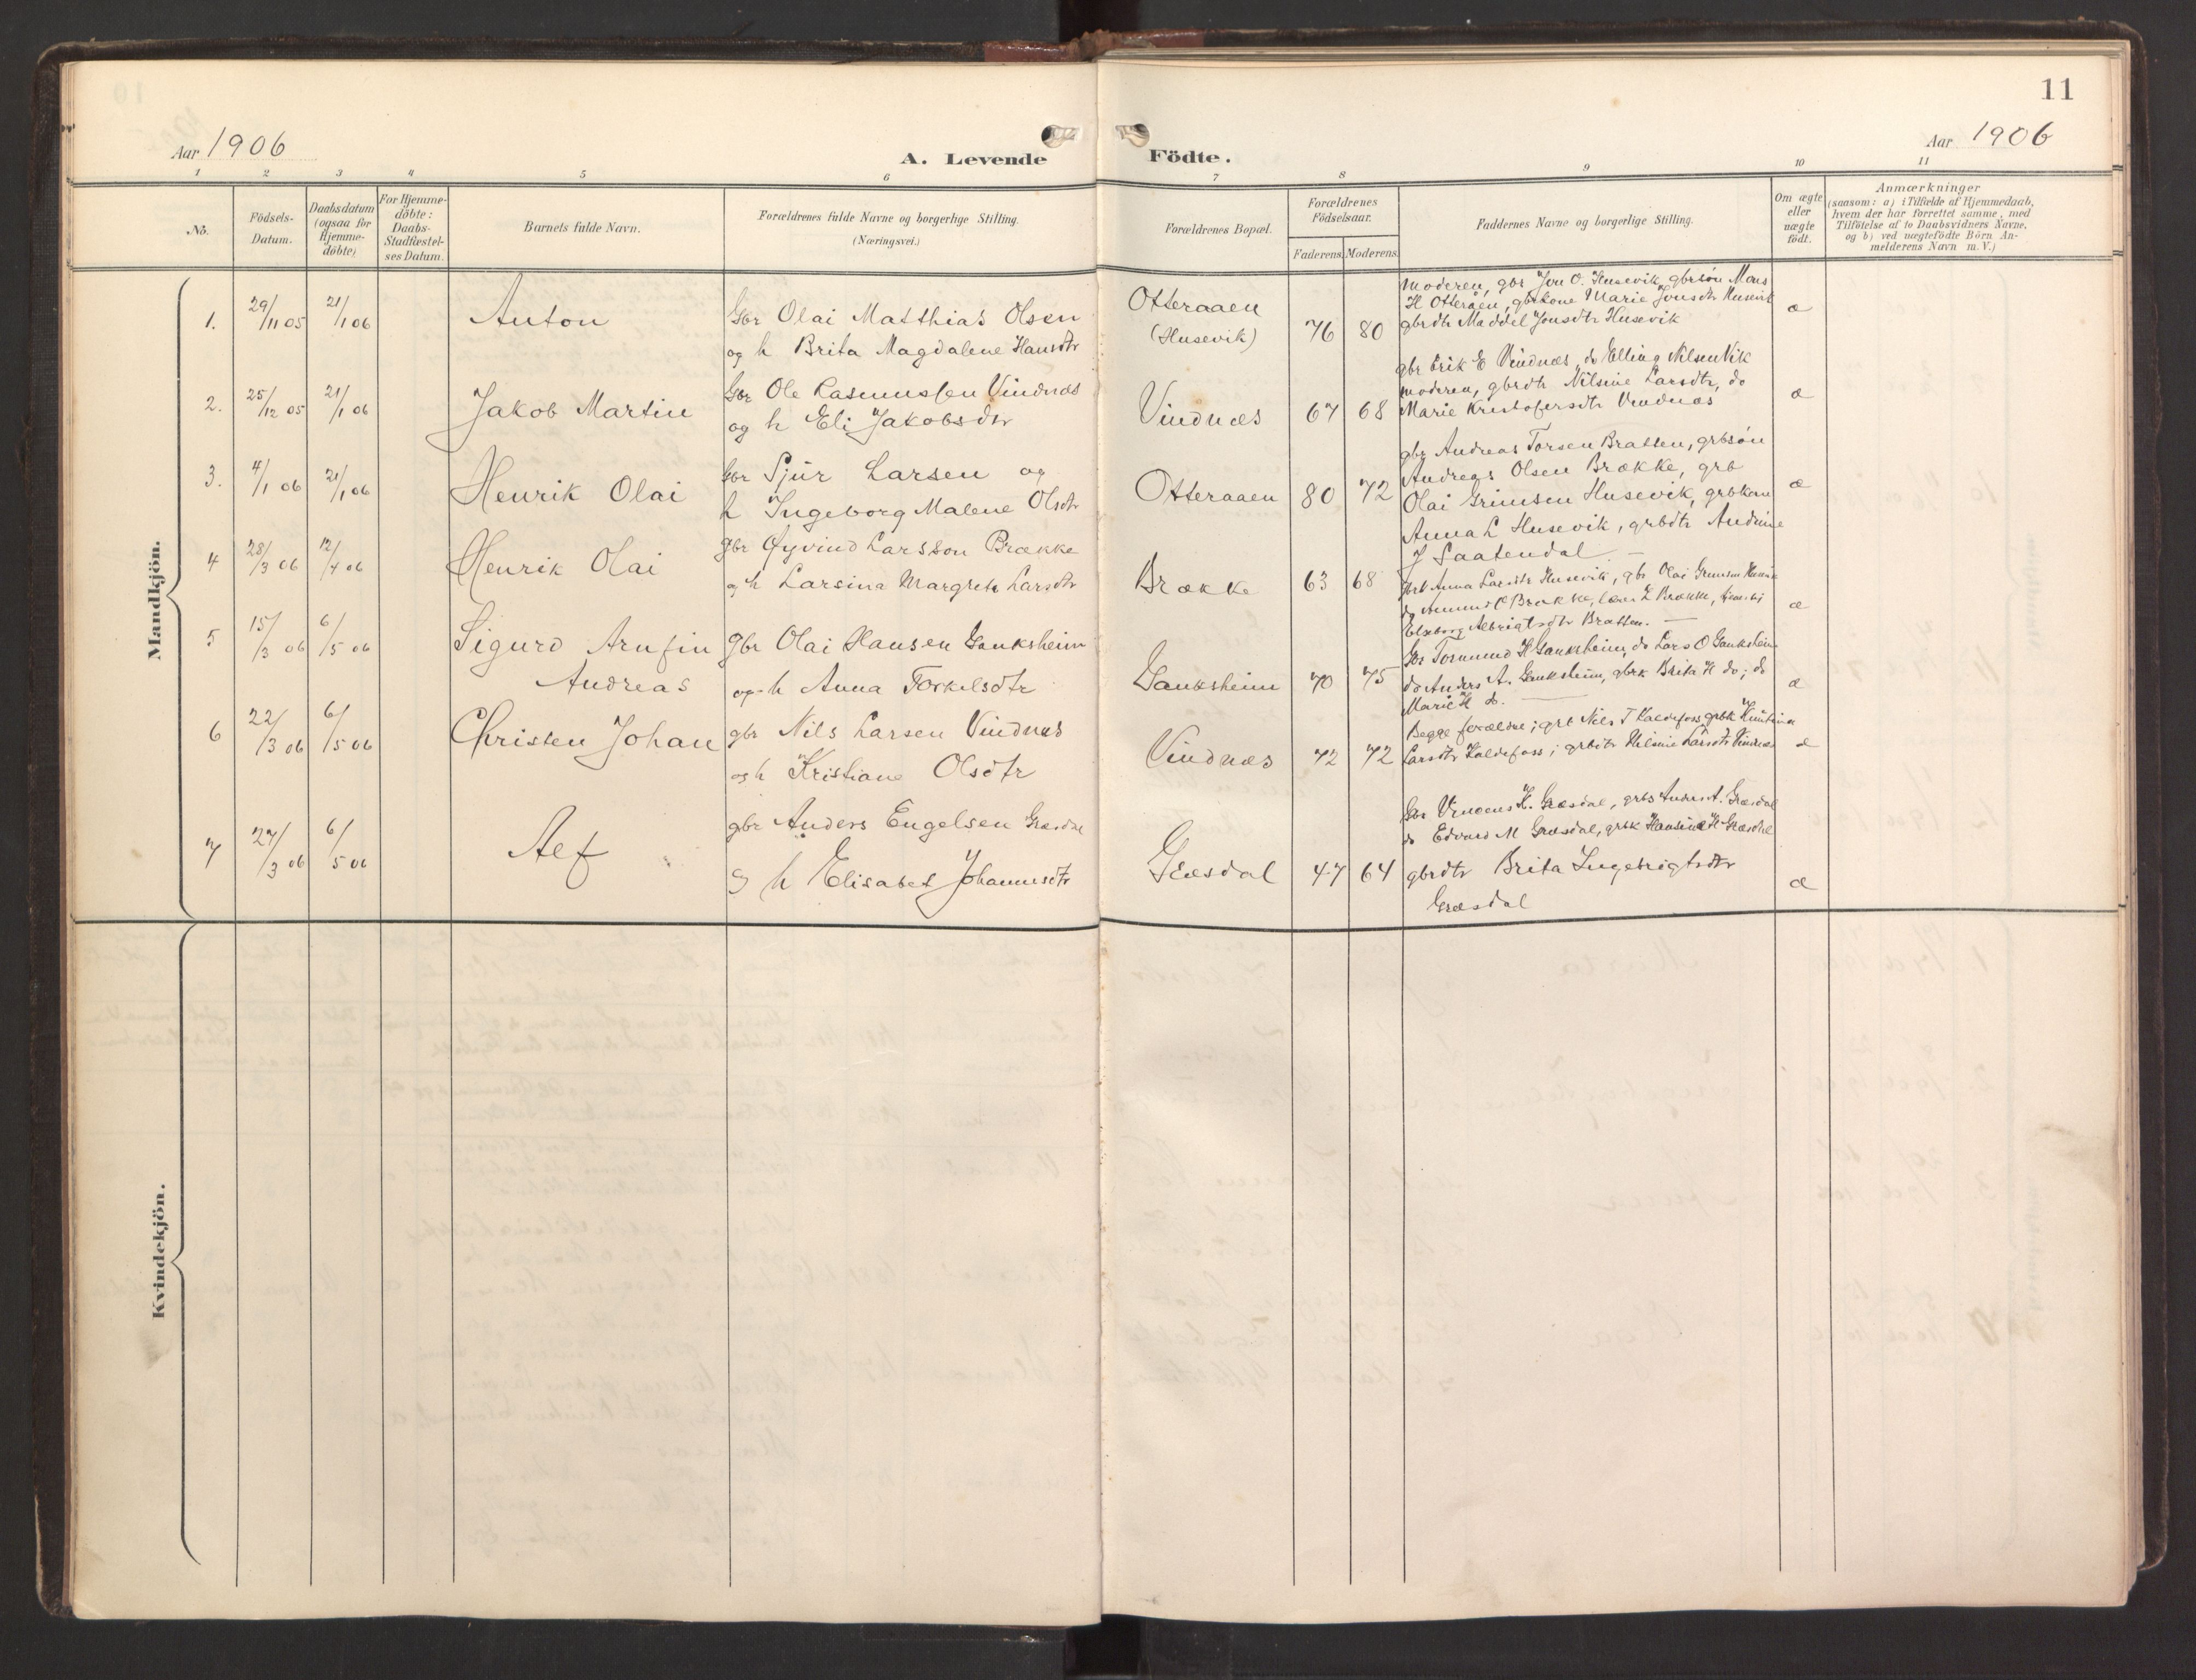 11
Aar 1906
A. Levende Födte.
Aar 1906
1 2 3 4 5 6 7 8 9 10 11
No.
Födsels-Datum.
Daabsdatum (ogsaa for Hjemme-döbte)
For Hjemme-döbte: Daabs-Stadfæstel-ses Datum.
Barnets fulde Navn.
Forældrenes fulde Navne og borgerlige Stilling.
(Næringsvei.)
Forældrenes Bopæl.
Forældrenes Födselsaar.
Faderens Moderens
Faddernes Navne og borgerlige Stilling.
Om ægte eller uægte födt.
Anmærkninger
(saasom: a) i Tilfælde af Hjemmedaab, hvem der har forrettet samme, med Tilföielse af to Daabsvidners Navne, og b) ved uægtefödte Börn Anmelderens Navn m. V.)
Mandkjön.
1. 29/11 05 21/1 06 Anton
Gbr Olai Matthias Olsen
og h Brita Magdalene Hansdtr
Otteraaen
(Husevik)
76 80
moderen, gbr Jon O. Husevik, gbrsön Mons
H Otteraen, gbrkone Marie Jonsdtr Husevik
gbrdtr Maddel Jonsdtr Husevik
æ
2. 25/12 05 21/1 06 Jakob Martin
Gbr Ole Rasmussen Vindnæs
og h Eli Jakobsdtr
Vindnæs
67 68
gbr Erik E Vindnæs, do Elling Nilsen Vik
moderen, gbrdtr Nilsine Larsdtr, do
Marie Kristofersdtr Vindnæs
æ
3. 4/1 06 21/1 06 Henrik Olai
Gbr Sjur Larsen og
h Ingeborg Malene Olsdtr
Otteraaen
80 72
gbr Andreas Torsen Bratten, grbsön
Andreas Olsen Brække, grb
Olai Grimsen Husevik, grbkone
Anna L Husevik, grbdtr Andrine
J Saatendal
æ
4 28/3 06 12/4 06 Henrik Olai
gbr Øyvind Larsson Brække
og h Larsina Margrete Larsdtr
Brække
63 68
Anna Larsdtr Husevik, gbr Olai Grimsen Husevik
Brække, L Brække,
Albrigtsdtr Bratten.
æ
5 15/3 06 6/5 06 Sigurd Arnfin
Andreas
gbr Olai Hansen Sanksheim
og h Anna Torkelsdtr
Sanksheim
70 75
Gbr Tormund H Sanksheim, do Lars O Sanksheim
do Anders A. Sanksheim, gbrk Brita H do; do
Marie H do.
æ
6 22/3 06 6/5 06 Christen Johan
gbr Nils Larsen Vindnæs
og h Kristiane Olsdtr
Vindnæs
72 72
Begge forældre; grb Nils T Kaldefoss grbk
Larsdtr Kaldefoss; grbdtr Nilsine Larsdtr Vindnæs
æ
7 27/3 06 6/5 06 Alf
gbr Anders Engelsen Græsdal
og h Elisabet Johannesdtr
Græsdal
47 64
Gbr K. Græsdal, grbs Anders A. Græsdal
do Edvard M Græsdal, grbk Hansine H Græsdal
gbrdtr Brita Ingebrigtsdtr
Græsdal
æ
Kvindekjön.